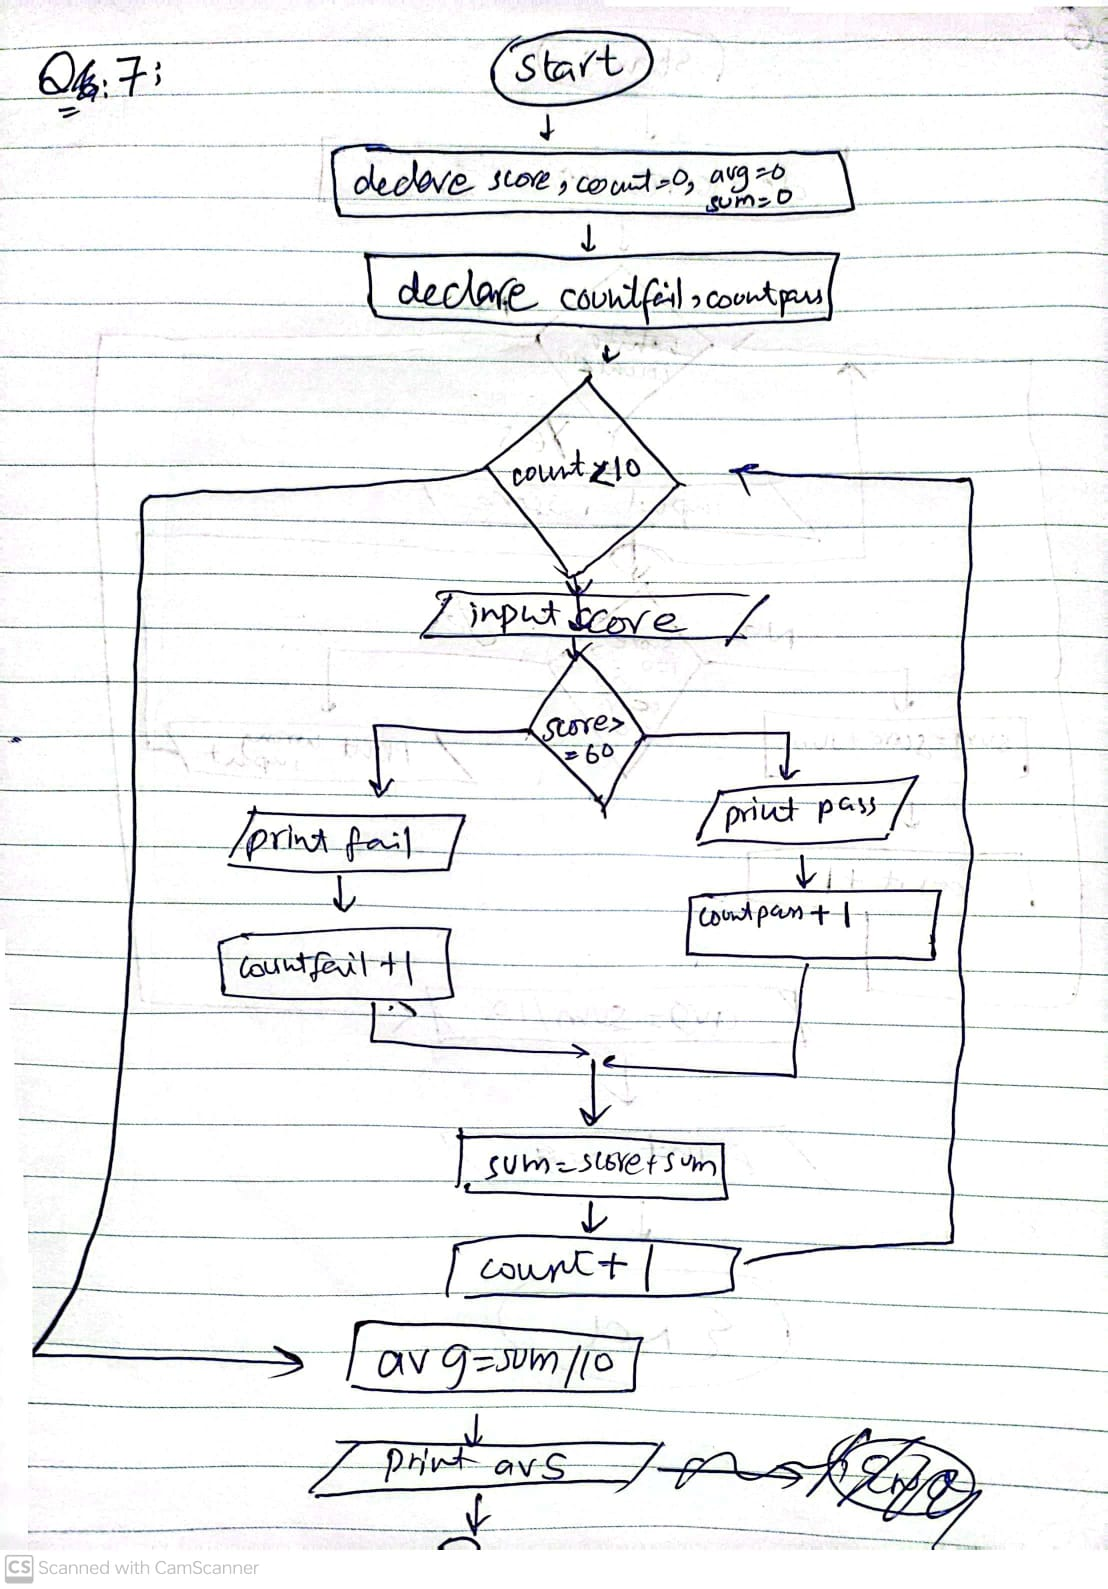 Q 7:
start
declare score, count=0, avg=0
sum=0
declare countfail, countpass
count<10
input score
score>
=60
print fail
print pass
countpass+1
countfail+1
sum=score+sum
count+1
avg=sum/10
print avg
CS Scanned with CamScanner